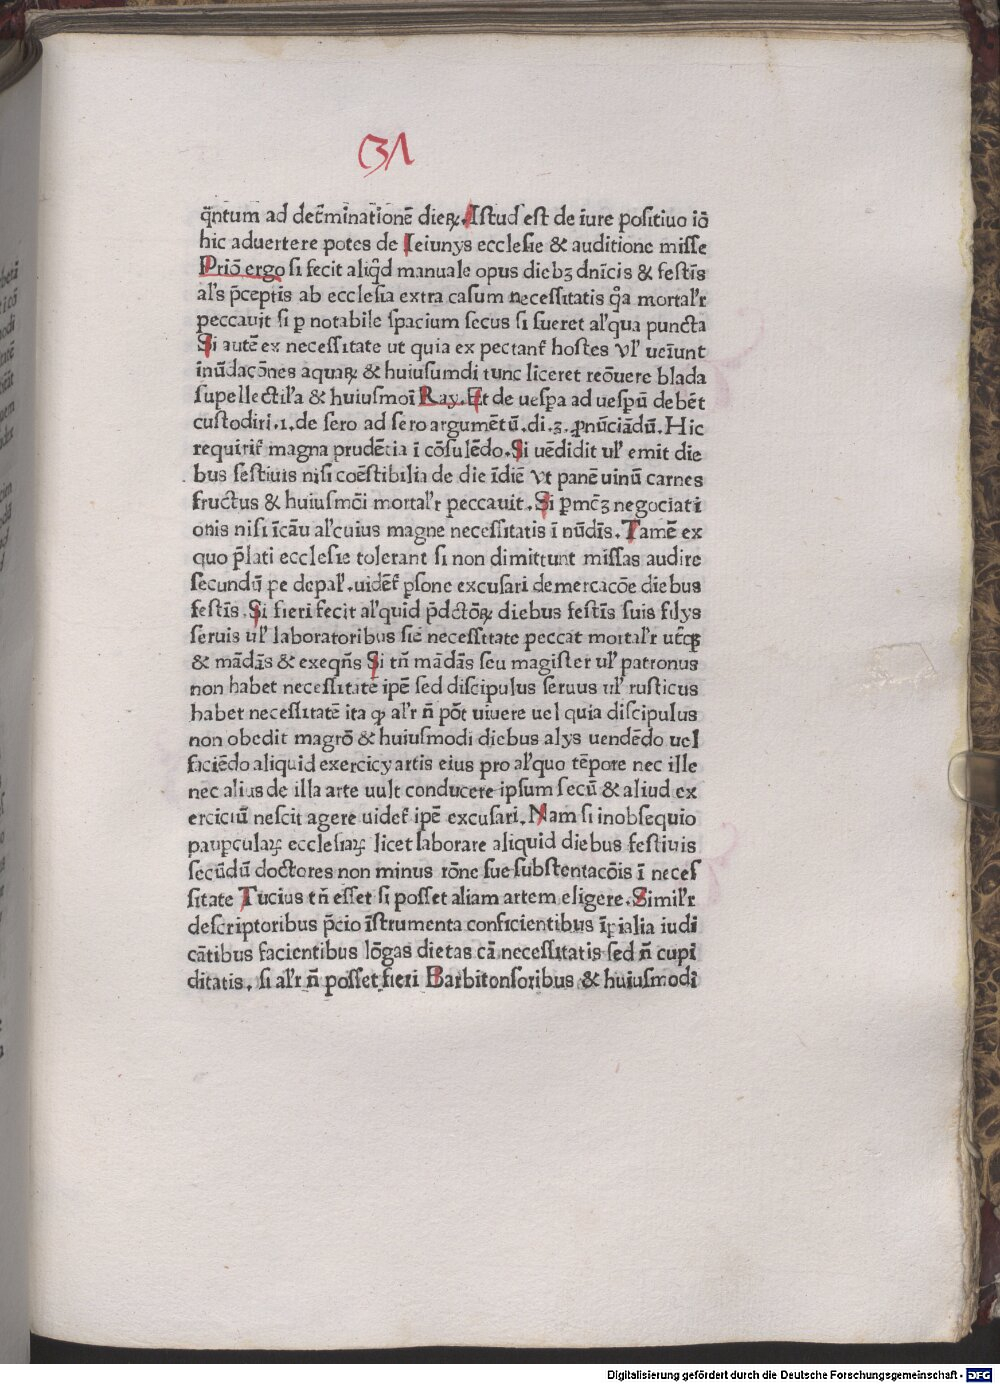 31
q̄ntum ad det̄minationē dieꝝ. Istud est de iure positiuo iō
hic aduertere potes de Ieiunys ecclesie & auditione misse
Priō ergo si fecit aliq̄d manuale opus diebꝫ dnīcis & festīs
al's p̄ceptis ab ecclesia extra casum necessitatis q̄a mortal'r
peccauit si ꝑ notabile spacium secus si fueret al'qua puncta
Si autē ex necessitate ut quia ex pectant̄ hostes vl' ueīunt
īnūdaçōnes aquaꝝ & huiusumdi tunc liceret reōuere blada
supellectil'a & huiusmoī Ray. Et de uespa ad uesp̄ū debēt
custodiri .1. de sero ad sero argumētū .di. ꝫ. ꝓnūciādū. Hic
requirit̄ magna prudētia ī cōsulēdo. Si uēdidit ul' emit die
bus festiuis nisi coēstibilia de die īdiē vt panē uinū carnes
fructus & huiusmōi mortal'r peccauit. Si ꝑmc̄ꝫ negociati
onis nisi īcāu al'cuius magne necessitatis ī nūdīs. Tamē ex
quo p̄lati ecclesie tolerant si non dimittunt missas audire
secundū pe de pal'. uidēt̄ ꝑsone excusari de mercacōe diebus
festīs. Si fieri fecit al'quid p̄dctōꝝ diebus festīs suis filys
seruis ul' laboratoribus siē necessitate peccat mortal'r ut̄qꝫ
& mādās & exeqn̄s Si tn̄ mādās seu magister ul' patronus
non habet necessitatē ipē sed discipulus seruus ul' rusticus
habet necessitatē ita ꝙ al'r n̄ pōt uiuere uel quia discipulus
non obedit magrō & huiusmodi diebus alys uendēdo uel
faciēdo aliquid exercicy artis eius pro al'quo tēpore nec ille
nec alius de illa arte uult conducere ipsum secū & aliud ex
erciciū nescit agere uidet̄ ipē excusari. Nam si in obsequio
paupculaꝝ ecclesiaꝝ licet laborare aliquid diebus festiuis
secūdū doctores non minus rōne sue substentacōis ī neces
sitate Tucius tn̄ esset si posset aliam artem eligere. Simil'r
descriptoribus p̄cio īstrumenta conficientibus īpialia iudi
cātibus facientibus lōgas dietas cā necessitatis sed n̄ cupi
ditatis. si al'r n̄ posset fieri Barbitonsoribus & huiusmodi
Digitalisierung gefördert durch die Deutsche Forschungsgemeinschaft - DFG